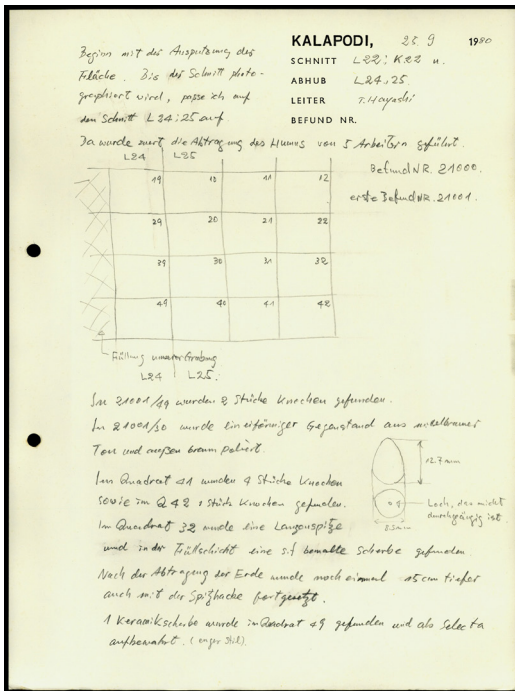 KALAPODI, 25 9 1980
SCHNITT L22; K22 u.
ABHUB L24,25.
LEITER T. Hayashi
BEFUND NR.
Beginn mit der Ausputzung der
Fläche. Bis der Schnitt photo-
graphiert wird, passe ich auf
den Schnitt L24;25 auf.
Da wurde zuerst die Abtragung des Humus von 5 Arbeitern geführt.
Befund NR. 21000.
erste Befund NR. 21001.
L24 L25
19 10 11 12
29 20 21 22
39 30 31 32
49 40 41 42
Füllung unserer Grabung
L24 L25.
In 21001/49 wurden 2 Stücke Knochen gefunden.
In 21001/30 wurde ein eiförmiger Gegenstand aus mittelbrauner
Ton und außen braun poliert.
12.7 mm
Im Quadrat 41 wurden 4 Stücke Knochen
sowie im Q 42 1 Stück Knochen gefunden.
Loch, das nicht
durchgängig ist
8.5mm
Im Quadrat 32 wurde eine Lanzenspitze
und in der Füllschicht eine s.f bemalte Scherbe gefunden
Nach der Abtragung der Erde wurde noch einmal 15cm tiefer
auch mit der Spitzhacke fortgesetzt.
1 Keramikscherbe wurde in Quadrat 49 gefunden und als Selecta
aufbewahrt. (enger Stil).